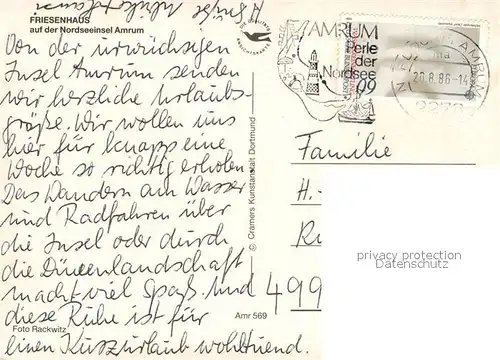 FRIESENHAUS
auf der Nordseeinsel Amrum
Von der urwüchsigen
Insel Amrum senden
wir herzliche Urlaubs-
grüße. Wir wollen uns
hier für knapp eine
Woche so richtig erholen.
Das Wandern am Wasser
und Radfahren über
die Insel oder durch
die Dünenlandschaft
macht viel Spaß. Und
diese Ruhe ist für
einen Kurzurlaub wohltuend.
Foto Rackwitz
Amr 569
© Cramers Kunstanstalt Dortmund
AMRUM
Perle
der
Nordsee
AMRUM
20.8.86-14
Familie
H.-
R
499
privacy protection
Datenschutz